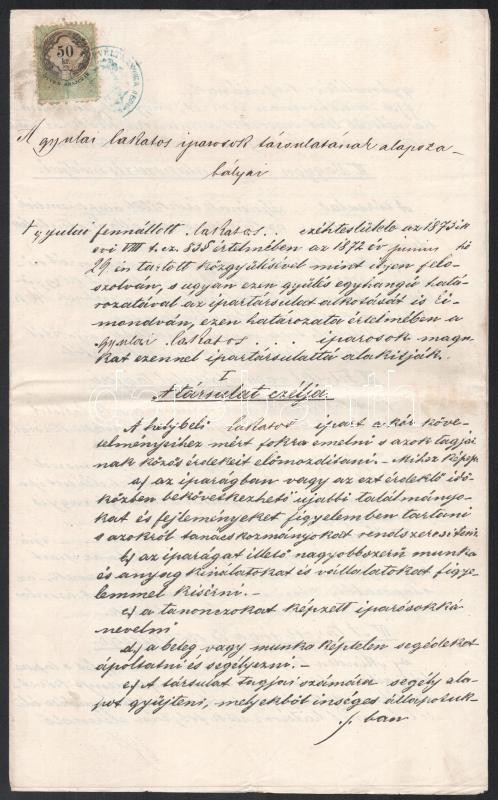 50
kr
A gyulai lakatos iparosok társulatának alapsza-
bályai
A gyulai fennállott lakatos . . czéhtestülete az 1872 ik
évi VIII t. cz. 83 § értelmében az 1872 év junius hó
29. én tartott közgyülésével mint ilyen felo-
szolván, s ugyan ezen gyülés egyhangu hatá-
rozatával az ipartársulat alkotását is ki
mondván, ezen határozata értelmében a
gyulai lakatos . . . iparosok magu-
kat ezennel ipartársulattá alakitják.
I
A társulat czélja.
A helybeli lakatos ipart a kor köve-
telményeihez mért fokra emelni s azok tagjai
nak közös érdekeit előmozditani. – Mihez képest
a) az iparágban vagy az ezt érdeklő idő-
közben bekövetkezhető ujabbi találmányo-
kat és fejleményeket figyelemben tartani
s azokról tanácskozmányokat rendszeresiteni
b) az iparágat illető nagyobbszerü munka
és anyag kinálatokat és vállalatokat figye-
lemmel kisérni. –
c) a tanonczokat képzett iparosokká
nevelni
d) a beteg vagy munka képtelen segédeket
ápoltatni és segélyezni. –
e) A társulat tagjai számára segély ala-
pot gyüjteni, melyekből inséges állapotuk-
ban